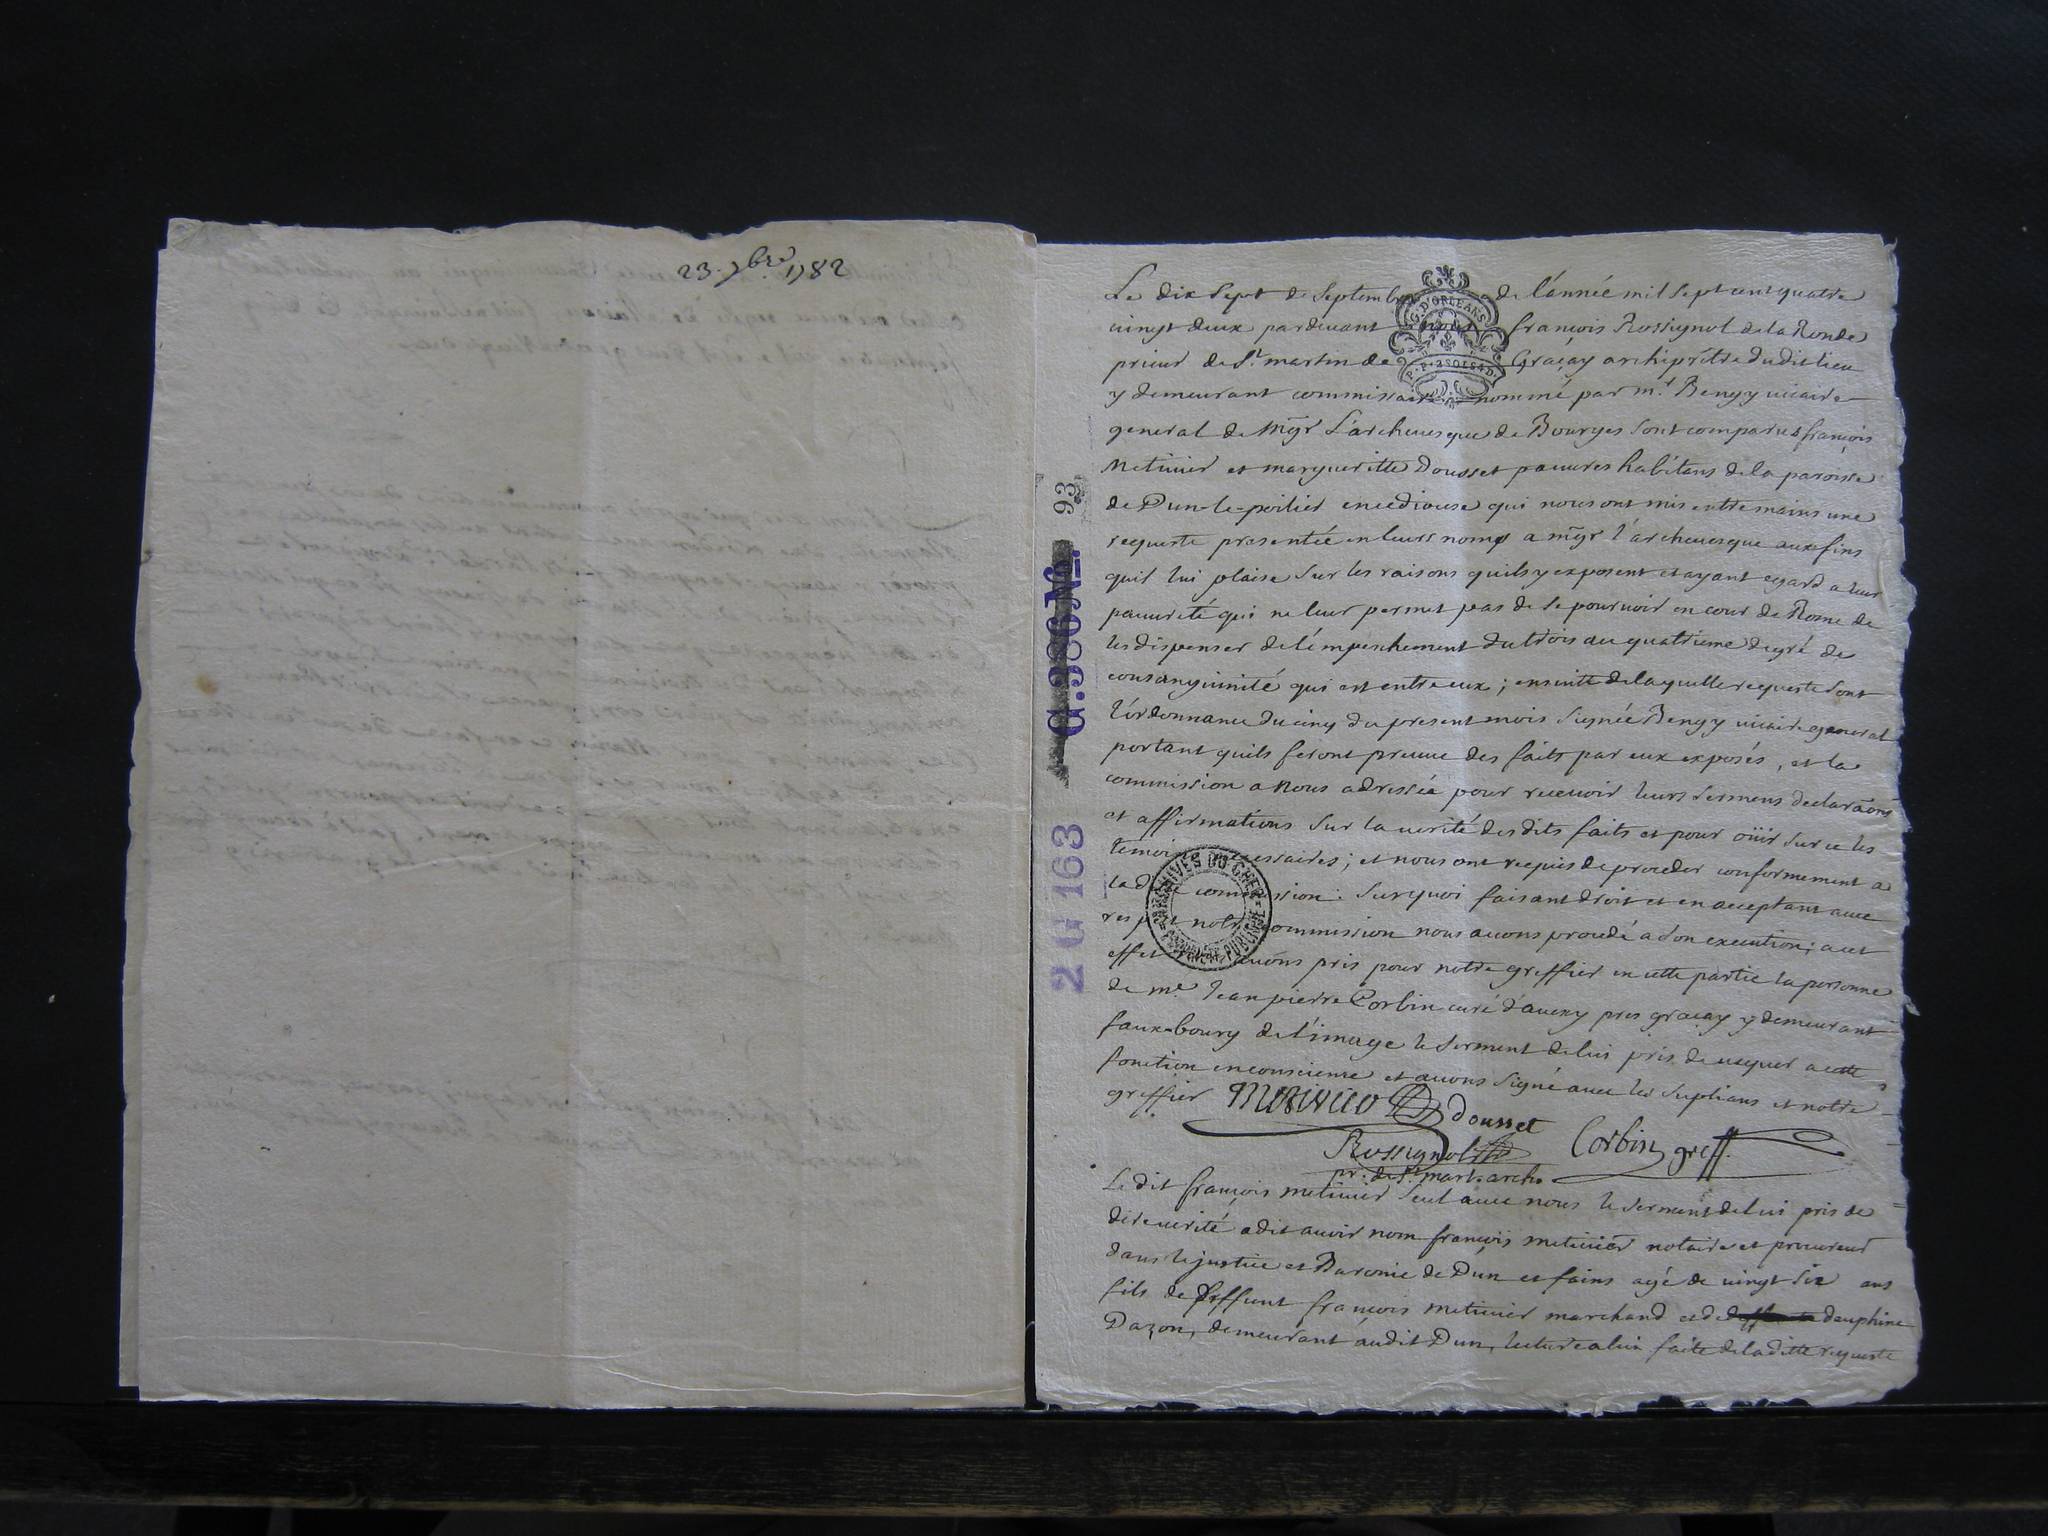 23. 7bre 1782
Le dix sept de Septembre de l'année mil sept cent quatre
vingt deux pardevant nous françois Rossignol de la Ronde
prieur de St. martin de Graçay archiprêtre dudit lieu
y demeurant commissaire nommé par mr. Bengy vicaire
general de Mgr L'archevesque de Bourges sont comparus françois
Metivier et margueritte Dousset pauvres habitans de la paroisse
de Dun-le-poilier en ce diocese qui nous ont mis entre mains une
requeste presentée en leurs noms a mgr l'archevesque aux fins
quil lui plaise sur les raisons quils y exposent et ayant egard a leur
pauvreté qui ne leur permet pas de se pourvoir en cour de Rome de
les dispenser de l'émpeschement du trois au quatrieme degré de
consanguinité qui est entre eux; ensuitte de laquelle requeste sont
l'ordonnance du cinq du present mois signée Bengy vicaire general
portant quils feront preuve des faits par eux exposés, et la
commission a nous adressée pour recevoir leurs sermens declaraons
et affirmations sur la verité des dits faits et pour oüir sur ce les
temoins necessaires; et nous ont requis de proceder conformement a
la dite commission: surquoi faisant droit et en acceptant avec
respect notre commission nous avons procedé a son execution; a cet
effet avons pris pour notre greffier en cette partie la personne
de me. Jean pierre Corbin curé d'avexy pres graçay y demeurant
faux-bourg de l'image le serment de lui pris de vaquer a cette
fonction en conscience et avons signé avec les suplians et notre
greffier Metivier Dousset
Rossignol Corbin greff.
pr. de St. mart. arch.
Le dit françois metivier seul avec nous le serment de lui pris de
dire verité a dit avoir nom françois metivier notaire et procureur
dans la justice et Baronie de Dun et fains agé de vingt six ans
fils de deffunt françois metivier marchand et de dauphine
Dazon, demeurant audit Dun, lecture a lui faite de la ditte requeste
G. D'ORLEANS
P. P. 2 SOLS 4 D.
ARCHIVES DU CHER
93
G. 986 No.
2 G 163